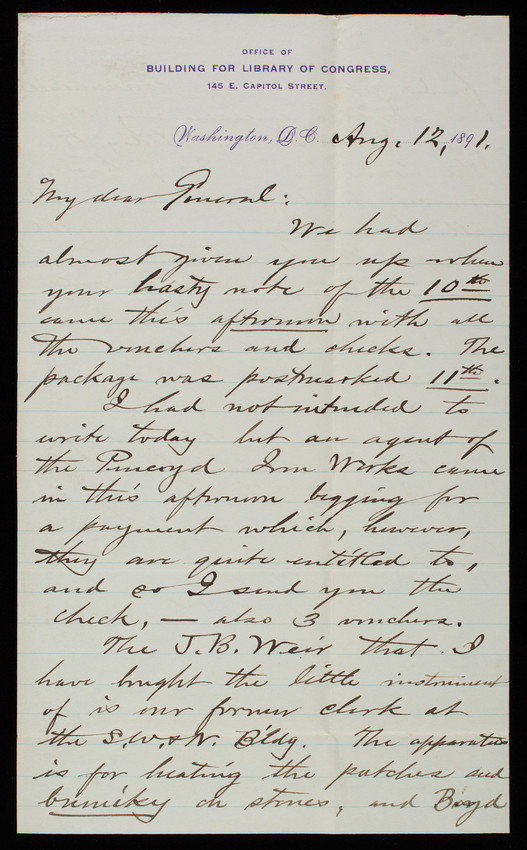 OFFICE OF
BUILDING FOR LIBRARY OF CONGRESS,
145 E. CAPITOL STREET.
Washington, D.C. Aug. 12, 1891.
My dear General:
We had
almost given you up when
your hasty note of the 10th
came this afternoon with all
the vouchers and checks. The
package was postmarked 11th.
I had not intended to
write today but an agent of
the Iron Works came
in this afternoon begging for
a payment which, however,
they are quite entitled to,
and so I send you the
check, — also 3 vouchers.
The J.B. Weir that I
have bought the little instrument
of is our former clerk at
the S.W.&N. Bldg. The apparatus
is for heating the patches and
on stones, and Boyd